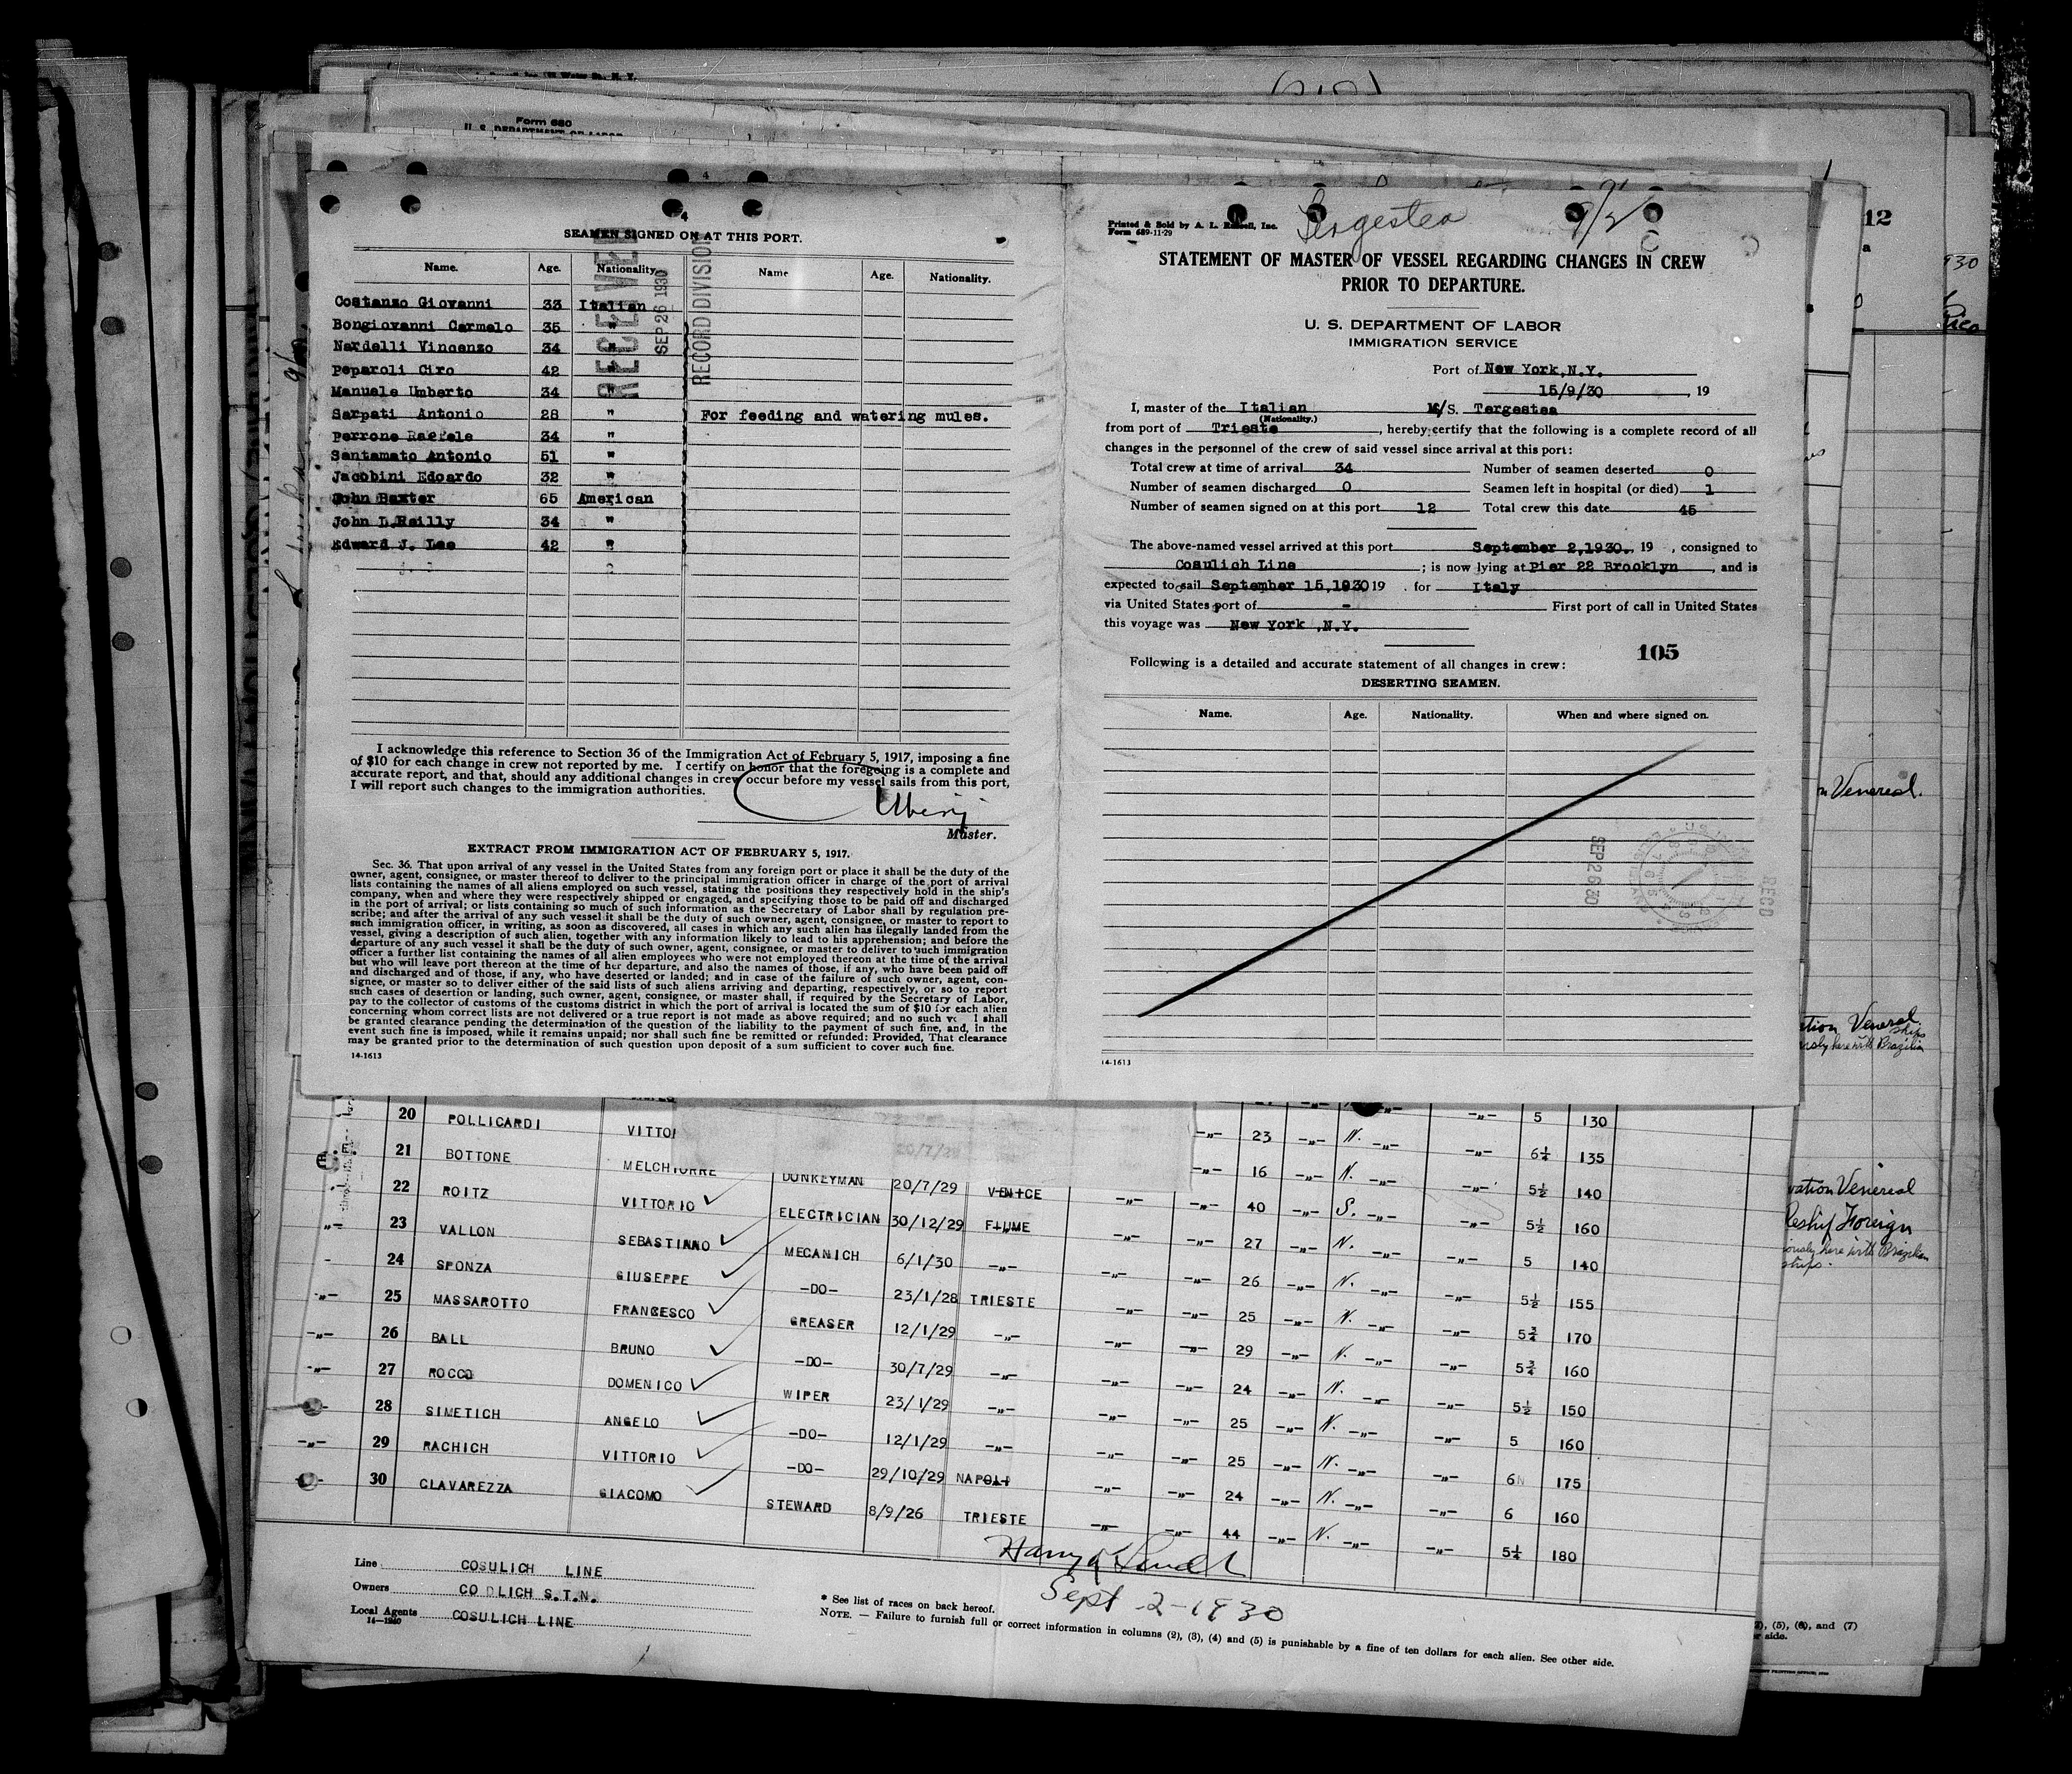 Form 680
SEAMEN SIGNED ON AT THIS PORT.
Name. Age. Nationality. Name Age. Nationality.
Costanzo Giovanni 33 Italian
Bongiovanni Carmelo 35 "
Nardelli Vincenzo 34 "
Peparoli Ciro 42 "
Manuele Umberto 34 "
Sarpati Antonio 28 " For feeding and watering mules.
Perrone 34 "
Santamato Antonio 51 "
Jacobini Edoardo 32 "
John Baxter 65 American
John L.Reilly 34 "
Edward J. Lee 42 "
RECEIVED
SEP 26 1930
RECORD DIVISION
I acknowledge this reference to Section 36 of the Immigration Act of February 5, 1917, imposing a fine
of $10 for each change in crew not reported by me. I certify on honor that the foregoing is a complete and
accurate report, and that, should any additional changes in crew occur before my vessel sails from this port,
I will report such changes to the immigration authorities.
Master.
EXTRACT FROM IMMIGRATION ACT OF FEBRUARY 5, 1917.
Sec. 36. That upon arrival of any vessel in the United States from any foreign port or place it shall be the duty of the
owner, agent, consignee, or master thereof to deliver to the principal immigration officer in charge of the port of arrival
lists containing the names of all aliens employed on such vessel, stating the positions they respectively hold in the ship's
company, when and where they were respectively shipped or engaged, and specifying those to be paid off and discharged
in the port of arrival; or lists containing so much of such information as the Secretary of Labor shall by regulation pre-
scribe; and after the arrival of any such vessel it shall be the duty of such owner, agent, consignee, or master to report to
such immigration officer, in writing, as soon as discovered, all cases in which any such alien has illegally landed from the
vessel, giving a description of such alien, together with any information likely to lead to his apprehension; and before the
departure of any such vessel it shall be the duty of such owner, agent, consignee, or master to deliver to such immigration
officer a further list containing the names of all alien employees who were not employed thereon at the time of the arrival
but who will leave port thereon at the time of her departure, and also the names of those, if any, who have been paid off
and discharged and of those, if any, who have deserted or landed; and in case of the failure of such owner, agent, con-
signee, or master so to deliver either of the said lists of such aliens arriving and departing, respectively, or so to report
such cases of desertion or landing, such owner, agent, consignee, or master shall, if required by the Secretary of Labor,
pay to the collector of customs of the customs district in which the port of arrival is located the sum of $10 for each alien
concerning whom correct lists are not delivered or a true report is not made as above required; and no such shall
be granted clearance pending the determination of the question of the liability to the payment of such fine, and, in the
event such fine is imposed, while it remains unpaid; nor shall such fine be remitted or refunded: Provided, That clearance
may be granted prior to the determination of such question upon deposit of a sum sufficient to cover such fine.
14-1613
Printed & Sold by A. L. Russell, Inc.
Form 689-11-29
Tergestea 9/2
STATEMENT OF MASTER OF VESSEL REGARDING CHANGES IN CREW
PRIOR TO DEPARTURE.
U. S. DEPARTMENT OF LABOR
IMMIGRATION SERVICE
Port of New York,N.Y.
15/9/30, 19
I, master of the Italian M/S. Tergestea
(Nationality.)
from port of Trieste, hereby certify that the following is a complete record of all
changes in the personnel of the crew of said vessel since arrival at this port:
Total crew at time of arrival 34 Number of seamen deserted 0
Number of seamen discharged 0 Seamen left in hospital (or died) 1
Number of seamen signed on at this port 12 Total crew this date 45
The above-named vessel arrived at this port September 2,1930., 19 , consigned to
Cosulich Line ; is now lying at Pier 22 Brooklyn, and is
expected to sail September 15,1930 19 . for Italy
via United States port of - First port of call in United States
this voyage was New York ,N.Y.
105
Following is a detailed and accurate statement of all changes in crew:
DESERTING SEAMEN.
Name. Age. Nationality. When and where signed on.
SEP 26 30
RECD
14-1613
20 POLLICARDI -„- 23 -„- N. -„- -„- 5 130
21 BOTTONE MELCHIORRE -„- 16 -„- N. -„- 6¼ 135
22 ROITZ VITTORIO DONKEYMAN 20/7/29 VENICE -„- -„- 40 -„- S. -„- -„- 5½ 140
23 VALLON SEBASTIANO ELECTRICIAN 30/12/29 FIUME -„- -„- 27 -„- N. -„- -„- 5½ 160
24 SPONZA GIUSEPPE MECANICH 6/1/30 -„- -„- -„- 26 -„- N. -„- -„- 5 140
-„- 25 MASSAROTTO FRANCESCO -DO- 23/1/28 TRIESTE -„- -„- 25 -„- N. -„- -„- 5½ 155
-„- 26 BALL BRUNO GREASER 12/1/29 -„- -„- -„- 29 -„- N. -„- -„- 5¾ 170
-„- 27 ROCCO DOMENICO -DO- 30/7/29 -„- -„- -„- 24 -„- N. -„- -„- 5¾ 160
28 SIMETICH ANGELO WIPER 23/1/29 -„- -„- -„- 25 -„- N. -„- -„- 5½ 150
-„- 29 RACHICH VITTORIO -DO- 12/1/29 -„- -„- -„- 25 -„- N. -„- -„- 5 160
30 CLAVAREZZA GIACOMO -DO- 29/10/29 NAPOLI -„- -„- 24 -„- N. -„- -„- 6 175
STEWARD 8/9/26 TRIESTE -„- -„- 44 -„- N. -„- -„- 6 160
5¼ 180
Sept-2-1930
Line COSULICH LINE
Owners S.T.N.
Local Agents COSULICH LINE
14-1240
* See list of races on back hereof.
NOTE. — Failure to furnish full or correct information in columns (2), (3), (4) and (5) is punishable by a fine of ten dollars for each alien. See other side.
12
Venereal.
Venereal
Venereal
Foreign
(5), (6), and (7)
side.